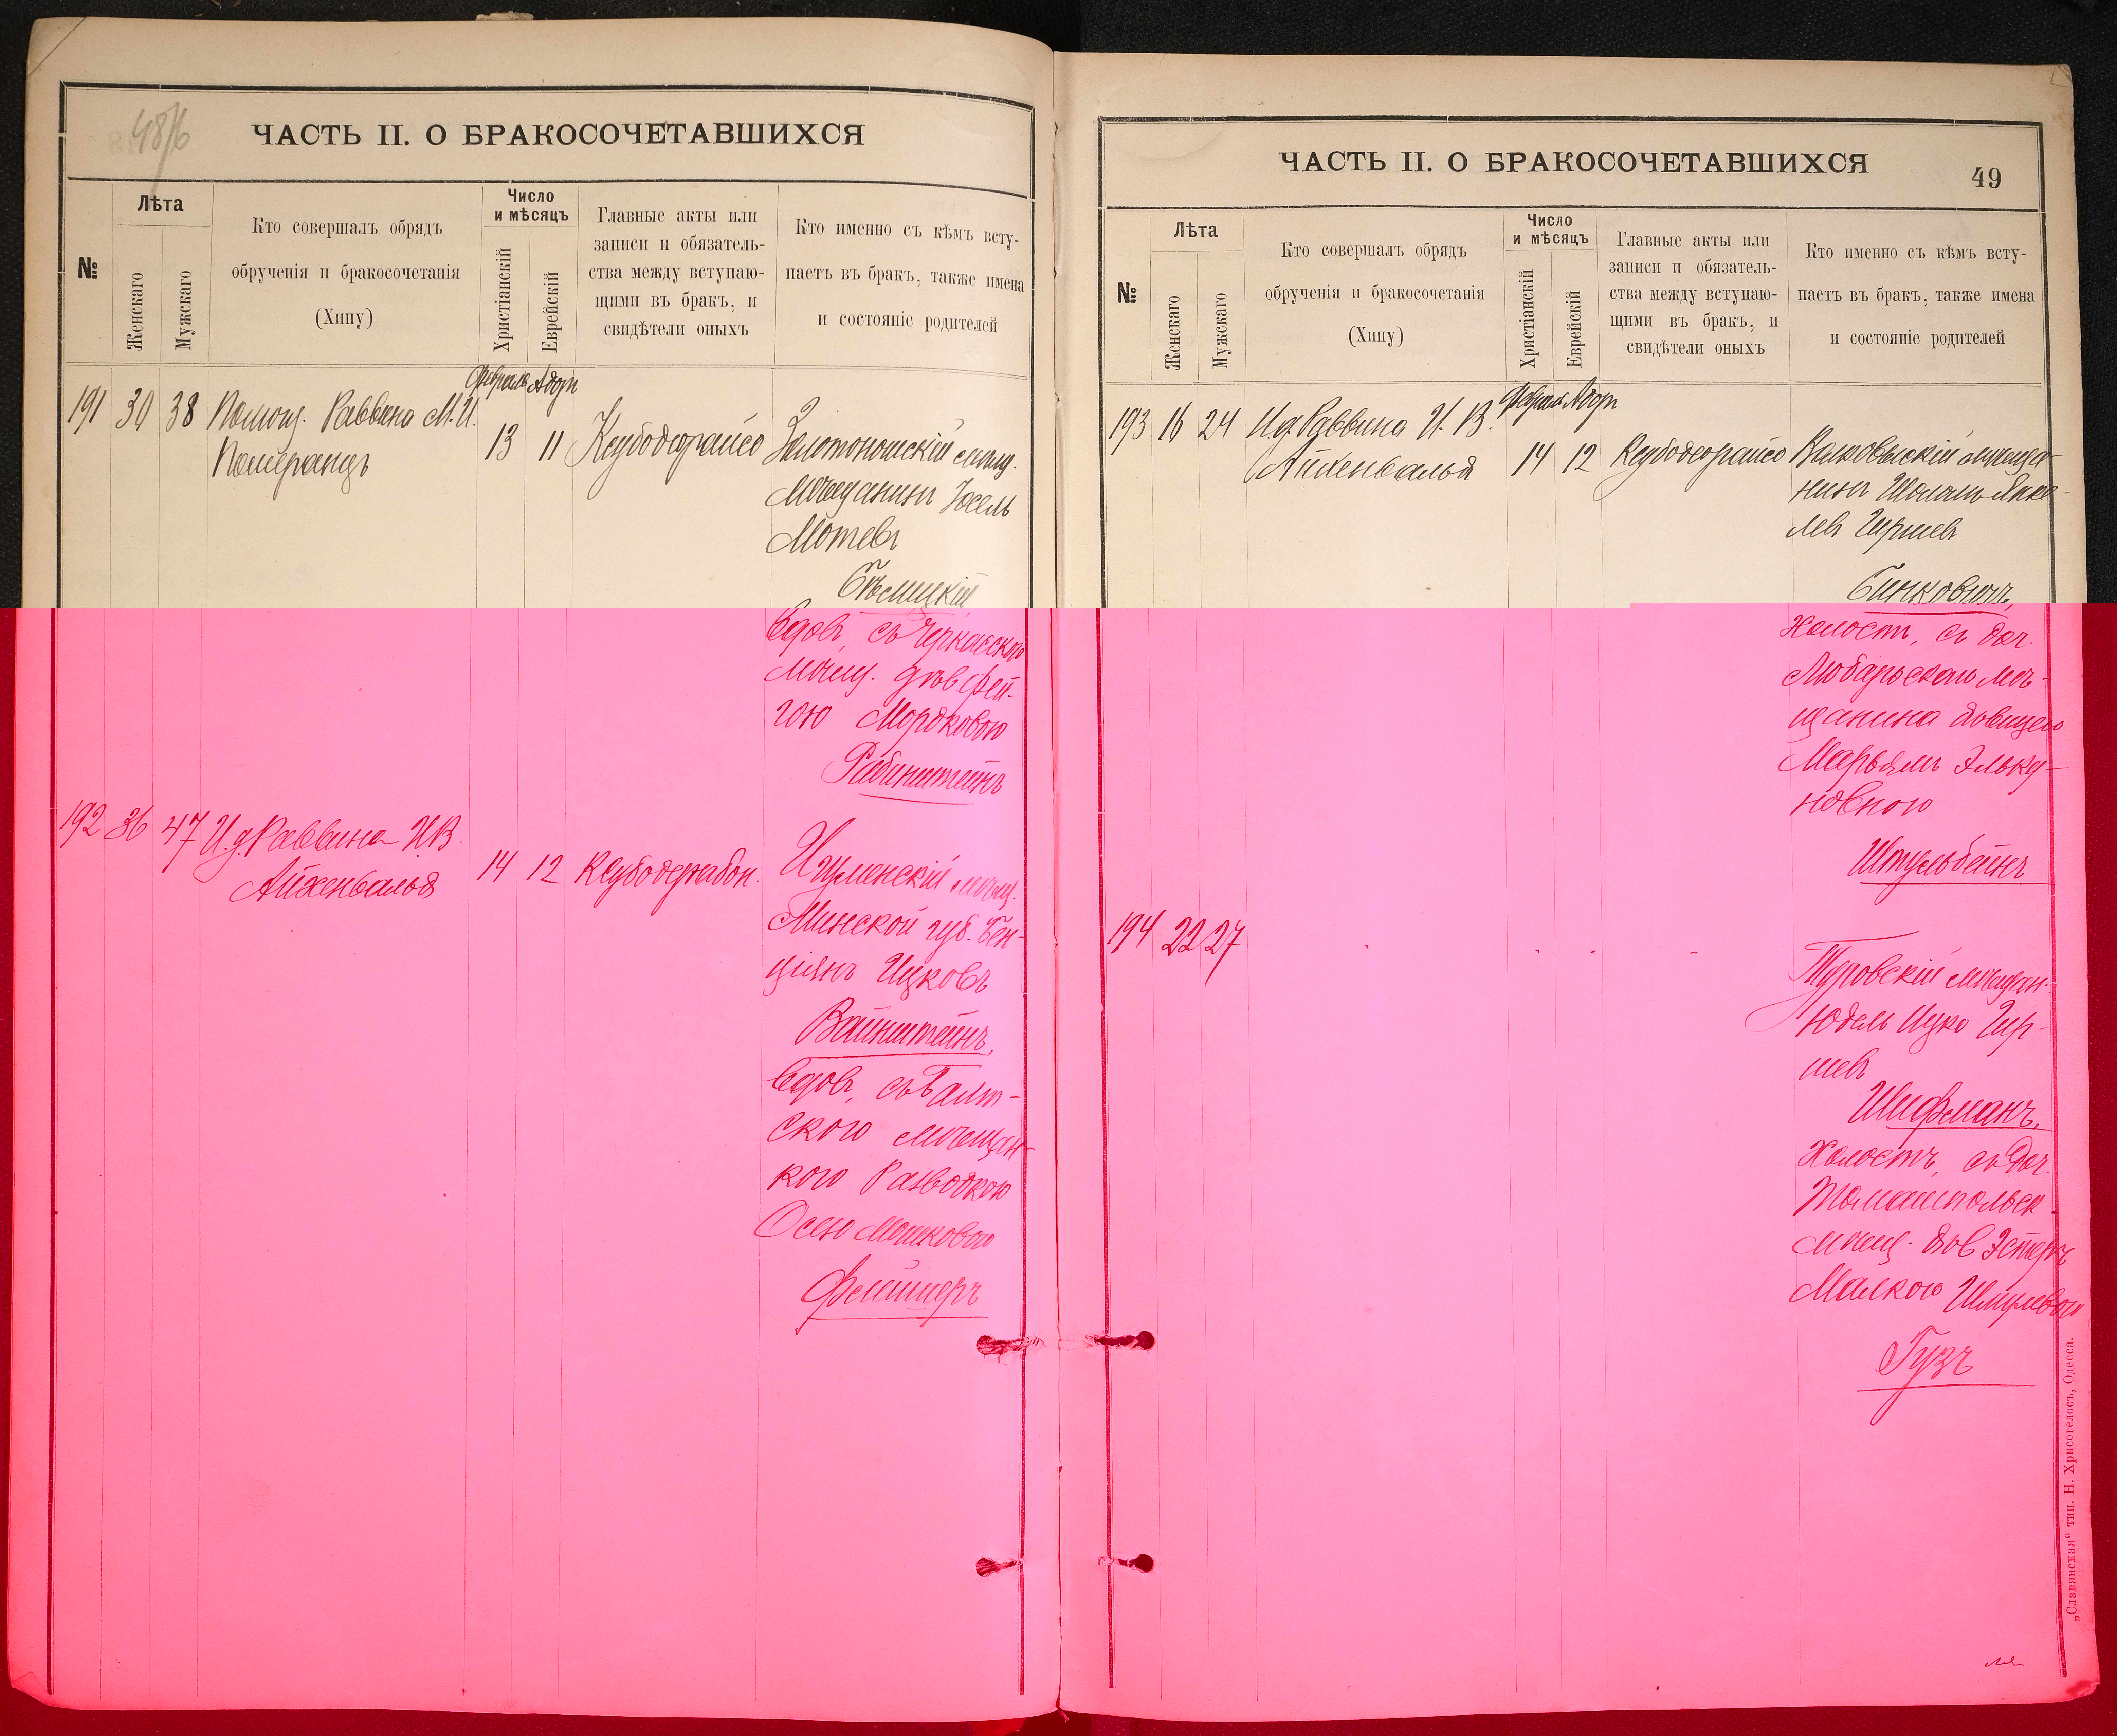 48/б
ЧАСТЬ II. О БРАКОСОЧЕТАВШИХСЯ
№
Лѣта
Женскаго
Мужскаго
Кто совершалъ обрядъ
обрученія и бракосочетанія
(Хипу)
Число
и мѣсяцъ
Христіанскій
Еврейскій
Главные акты или
записи и обязатель-
ства между вступаю-
щими въ бракъ, и
свидѣтели оныхъ
Кто именно съ кѣмъ всту-
паетъ въ бракъ, также имена
и состояніе родителей
Февраль Адаръ
191 30 38 Помощ. Раввина М. И.
Померанцъ
13 11
Золотоношскій
мѣщанинъ Іосель
Мотевъ
Бѣлицкій
вдов., съ Черкасскою
мѣщ. дѣв. Фей-
гою Мордковою
Рабинштейнъ
192 36 47 И. д. Раввина И. В.
Айхенвальд
14 12
Игуменскій мѣщ.
Минской губ. Бен-
ціянъ Ицковъ
Вайнштейнъ,
вдов., съ Балт-
скою мѣщан-
кою разводкою
Осею Мошковою
Флейшеръ
ЧАСТЬ II. О БРАКОСОЧЕТАВШИХСЯ
49
№
Лѣта
Женскаго
Мужскаго
Кто совершалъ обрядъ
обрученія и бракосочетанія
(Хипу)
Число
и мѣсяцъ
Христіанскій
Еврейскій
Главные акты или
записи и обязатель-
ства между вступаю-
щими въ бракъ, и
свидѣтели оныхъ
Кто именно съ кѣмъ всту-
паетъ въ бракъ, также имена
и состояніе родителей
Февраль Адаръ
193 16 24 И. д. Раввина И. В.
Айхенвальд
14 12
Волковыскій мѣща-
нинъ Шоломъ Янке-
левъ Гиршевъ
Бинковичъ,
холостъ, съ доч.
Любарьскаго мѣ-
щанина дѣвицею
Марьямъ Эльку-
новною
Штульбейнъ
194 22 27
Туровскій мѣщан.
Юдель Ицко Гир-
шевъ
Шифманъ,
холостъ, съ доч.
Томашпольск.
мѣщ. дѣв. Эстеръ
Малкою Шмулевою
Гузъ
„Славянская“ тип. Н. Хрисогелосъ, Одесса.